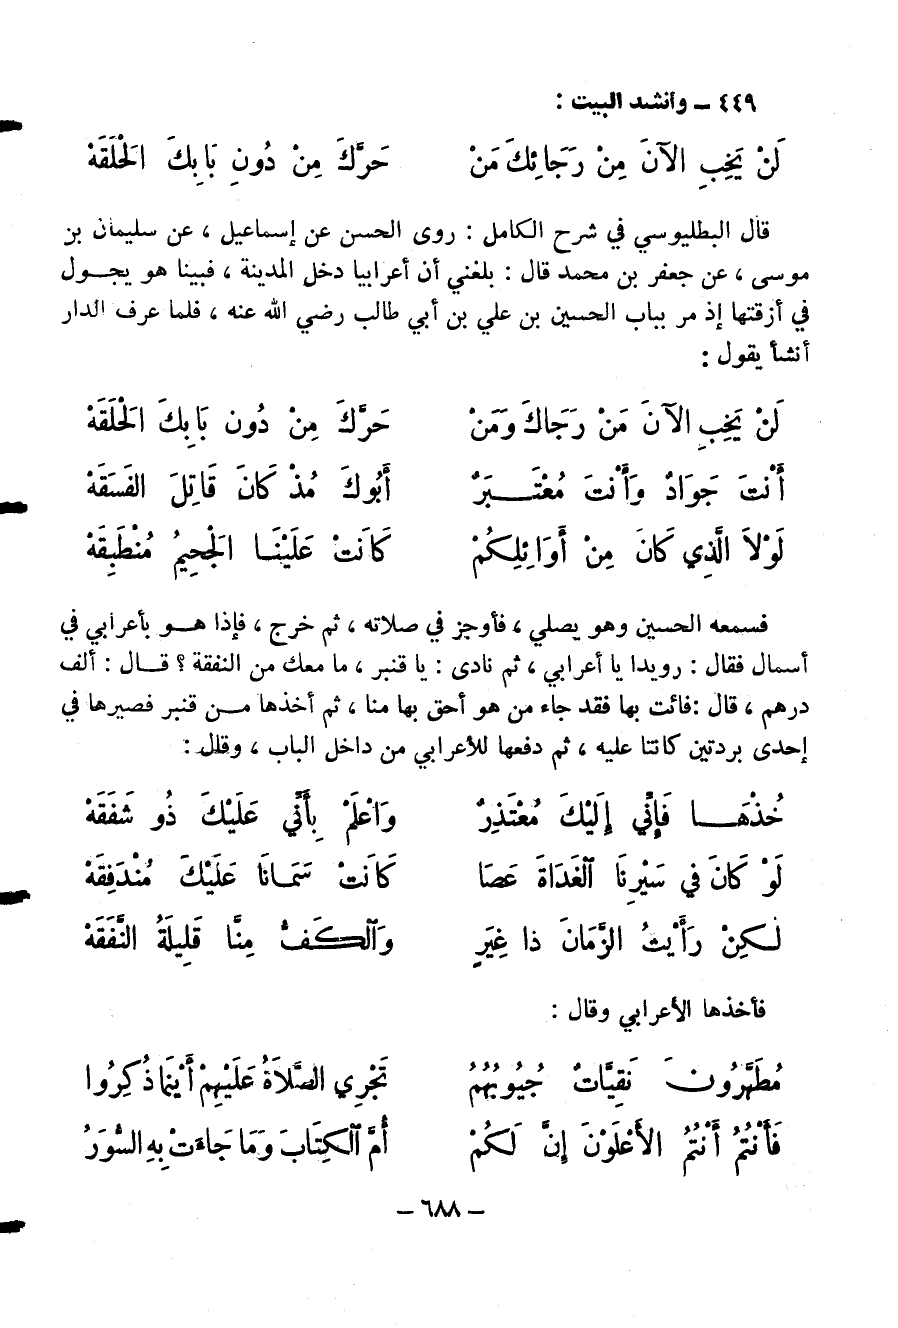 ٤٤٩ ــ وأنشد البيت :
لَنْ يَخِبِ الآنَ مِنْ رَجَائِكَ مَنْ حَرَّكَ مِنْ دُونِ بَابِكَ الْحَلَقَهْ
قال البطليوسي في شرح الكامل : روى الحسن عن إسماعيل ، عن سليمان بن
موسى ، عن جعفر بن محمد قال : بلغني أن أعرابيا دخل المدينة ، فبينا هو يجــول
في أزقتها إذ مر بباب الحسين بن علي بن أبي طالب رضي الله عنه ، فلما عرف الدار
أنشأ يقول :
لَنْ يَخِبِ الآنَ مَنْ رَجَاكَ وَمَنْ حَرَّكَ مِنْ دُونِ بَابِكَ الْحَلَقَهْ
أَنْتَ جَوَادٌ وَأَنْتَ مُعْتَبَـــرٌ أَبُوكَ مُذْ كَانَ قَاتِلَ الفَسَقَهْ
لَوْلاَ الَّذِي كَانَ مِنْ أَوَائِلِكُمْ كَانَتْ عَلَيْنَـا الْجَحِيمُ مُنْطَبِقَهْ
فسمعه الحسين وهو يصلي ، فأوجز في صلاته ، ثم خرج ، فإذا هــو بأعرابي في
أسمال فقال : رويدا يا أعرابي ، ثم نادى : يا قنبر ، ما معك من النفقة ؟ قــال : ألف
درهم ، قال :فائت بها فقد جاء من هو أحق بها منا ، ثم أخذها مــن قنبر فصيرها في
إحدى بردتين كانتا عليه ، ثم دفعها للأعرابي من داخل الباب ، وقلل :
خُذْهَـــا فَإِنِّي إِلَيْكَ مُعْتَذِرٌ وَاعْلَمْ بِأَنِّي عَلَيْكَ ذُو شَفَقَهْ
لَوْ كَانَ فِي سَيْرِنَا الْغَدَاةَ عَصَا كَانَتْ سَمَانَا عَلَيْكَ مُنْدَفِقَهْ
لَـكِنْ رَأَيْتُ الزَّمَانَ ذَا غِيَرٍ وَالْكَفُّ مِنَّا قَلِيلَةُ النَّفَقَهْ
فأخذها الأعرابي وقال :
مُطَهَّرُونَ نَقِيَّاتٌ جُيُوبُهُمُ تَجْرِي الصَّلاَةُ عَلَيْهِمْ أَيْنَمَا ذُكِرُوا
فَأَنْتُمُ أَنْتُمُ الأَعْلَوْنَ إِنَّ لَكُمْ أُمَّ الْكِتَابِ وَمَا جَاءَتْ بِهِ السُّوَرُ
ــ ٦٨٨ ــ